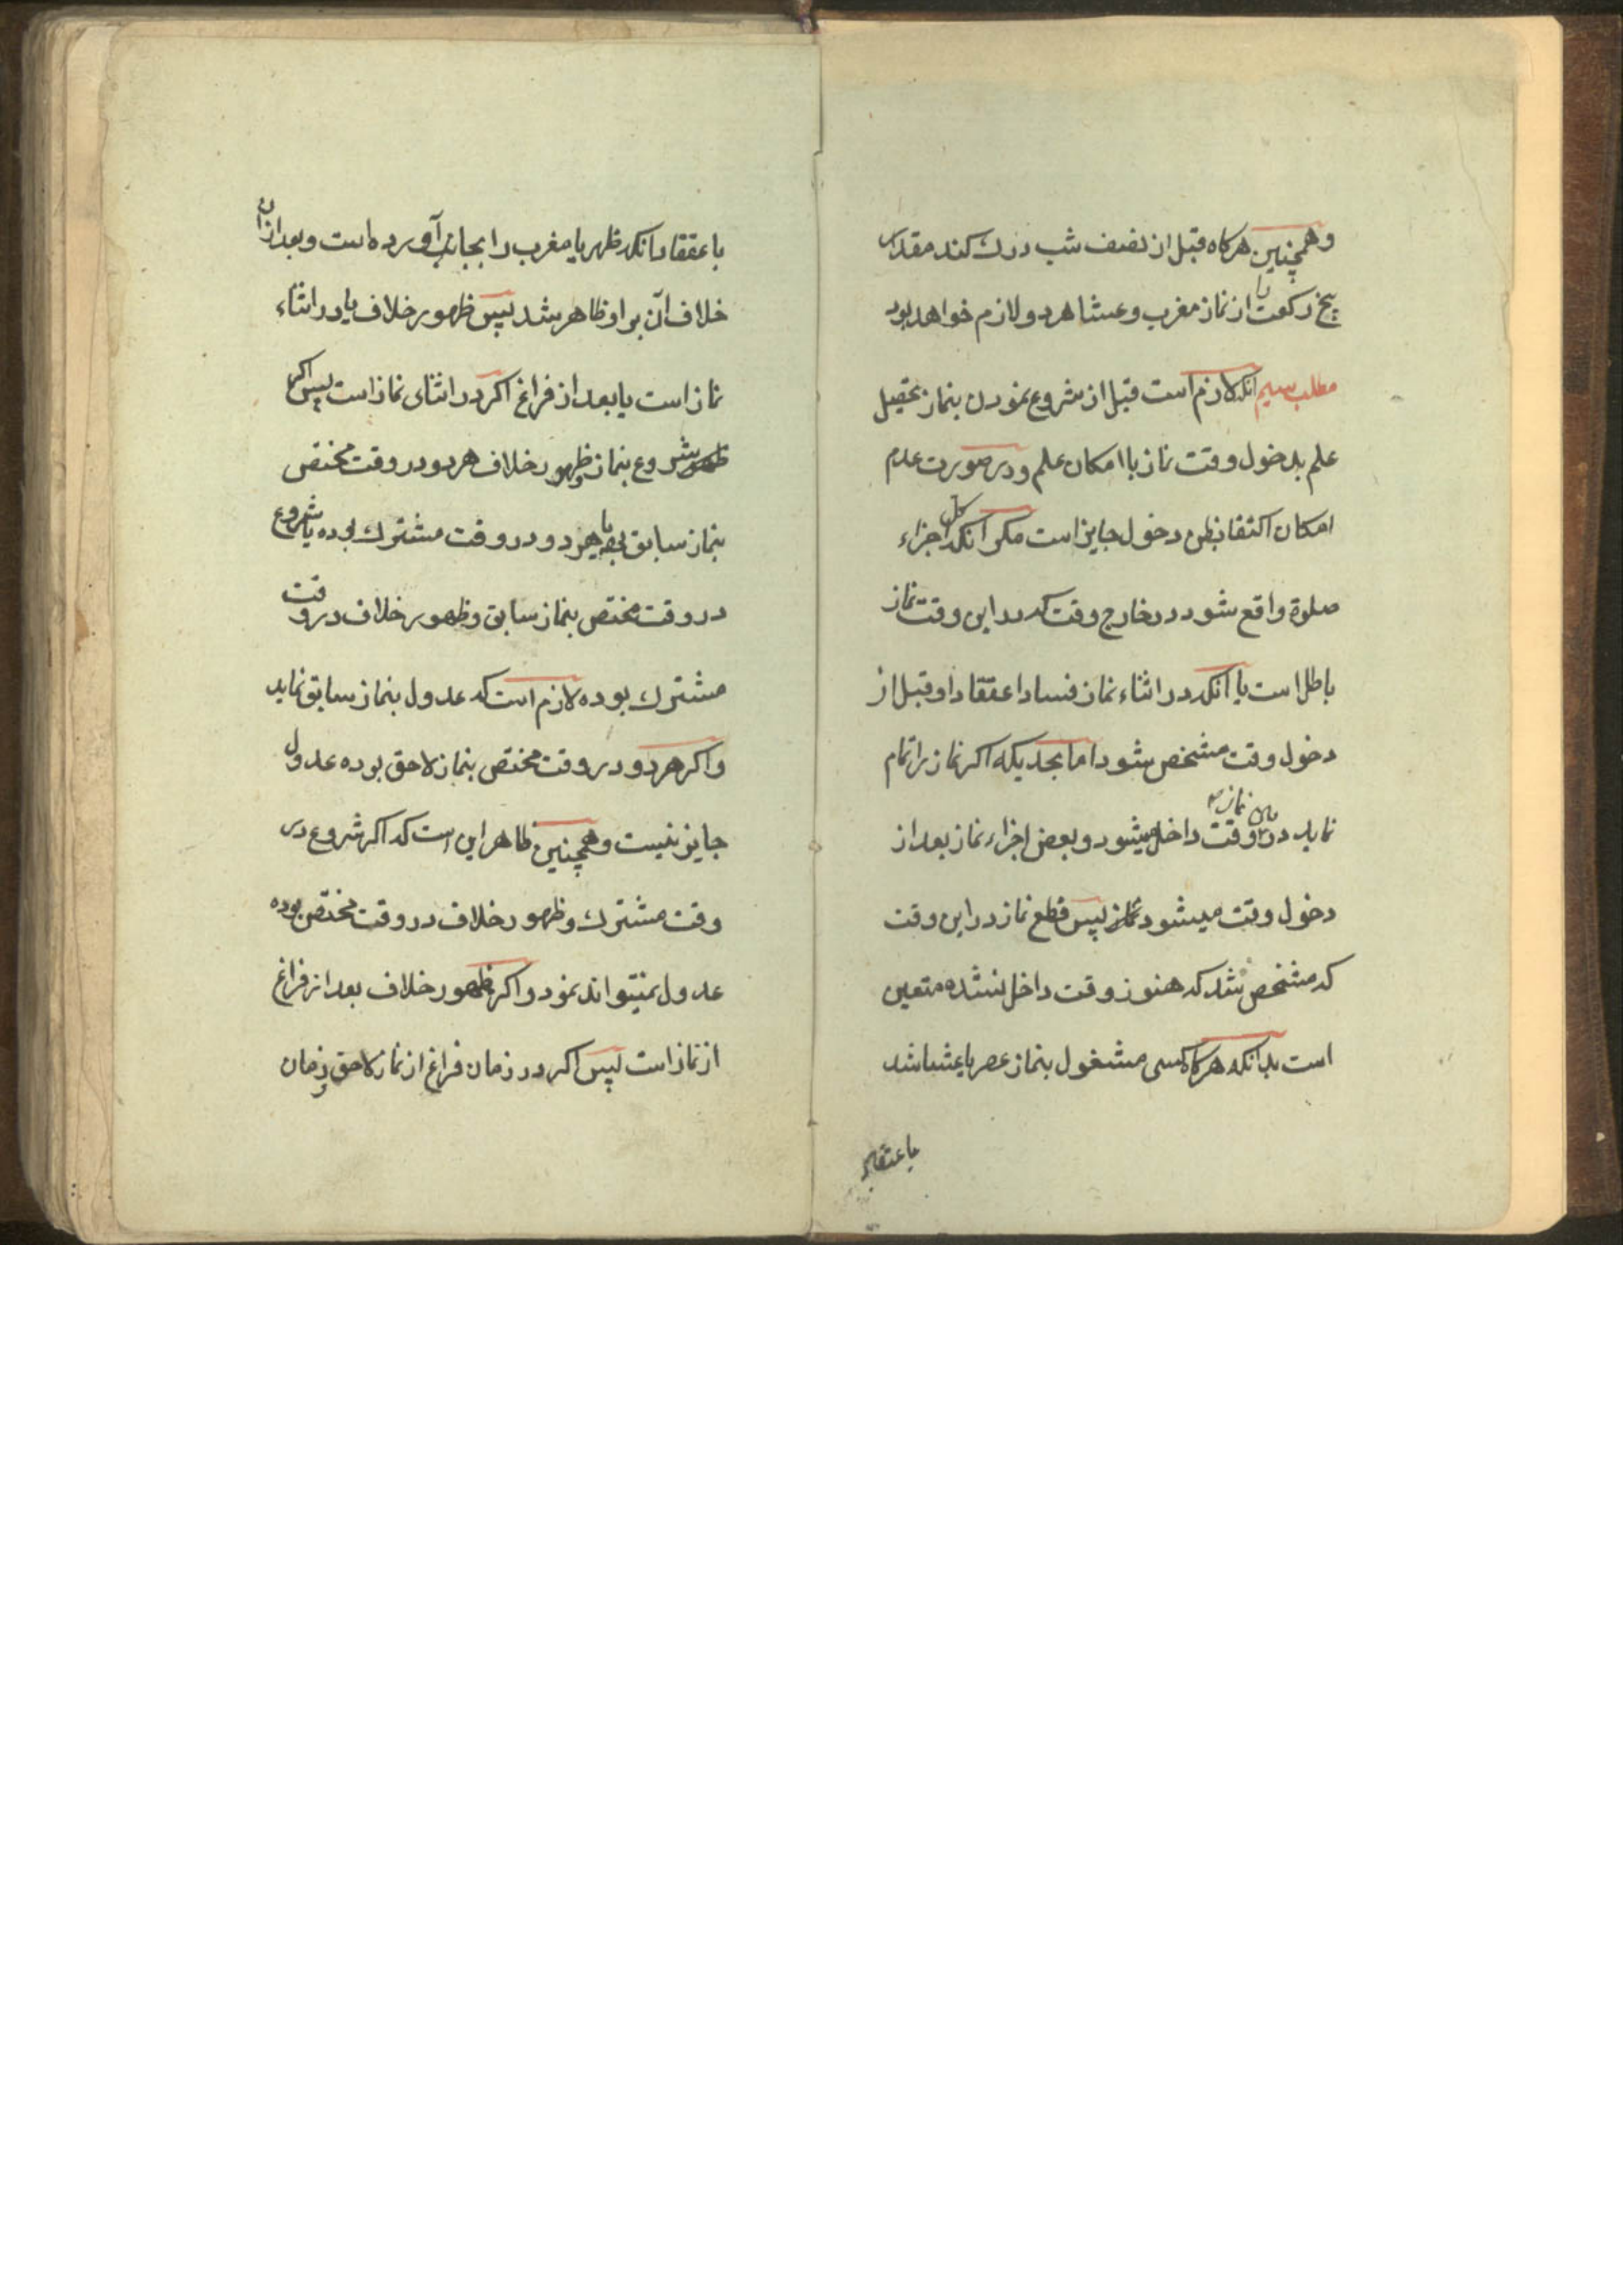 وهمچنین هرکاه قبل از نصف شب درك كند مقدار
پنج ركعت را از نماز مغرب وعشا هر دو لازم خواهد بود
مطلب سیم انکه لازم است قبل از شروع نمودن بنماز تحصیل
علم بدخول وقت نماز با امکان علم ودر صورت عدم
امکان اکتفا بظن دخول جایز است مکر انکه کل اجزاء
صلوة واقع شود در خارج وقت که در این وقت نماز
باطل است یا انکه در اثناء نماز فساد اعتقاد او قبل از
دخول وقت مشخص شود اما بحدیکه اکر نماز را تمام
نماید در بین نماز وقت داخل میشود و بعض اجزاء نماز بعد از
دخول وقت میشود پس قطع نماز در این وقت
که مشخص شد که هنوز وقت داخل نشده متعین
است بدانکه هرکاه کسی مشغول بنماز عصر یا عشا شد
باعتقاد
باعتقاد انکه ظهر یا مغرب را بجای آورده است و بعد از ان
خلاف آن بر او ظاهر شد پس ظهور خلاف یا در اثناء
نماز است یا بعد از فراغ اکر در اثنای نماز است پس اکر
شروع بنماز و ظهور خلاف هر دو در وقت مختص
بنماز سابق یا هر دو در وقت مشترك بوده یا شروع
در وقت مختص بنماز سابق وظهور خلاف در وقت
مشترك بوده لازم است که عدول بنماز سابق نماید
واکر هر دو در وقت مختص بنماز لاحق بوده عدول
جایز نیست وهمچنین ظاهر این است که اکر شروع در
وقت مشترك وظهور خلاف در وقت مختص بوده
عدول نمیتواند نمود واکر ظهور خلاف بعد از فراغ
از نماز است پس اکر در زمان فراغ از نماز لاحق زمان